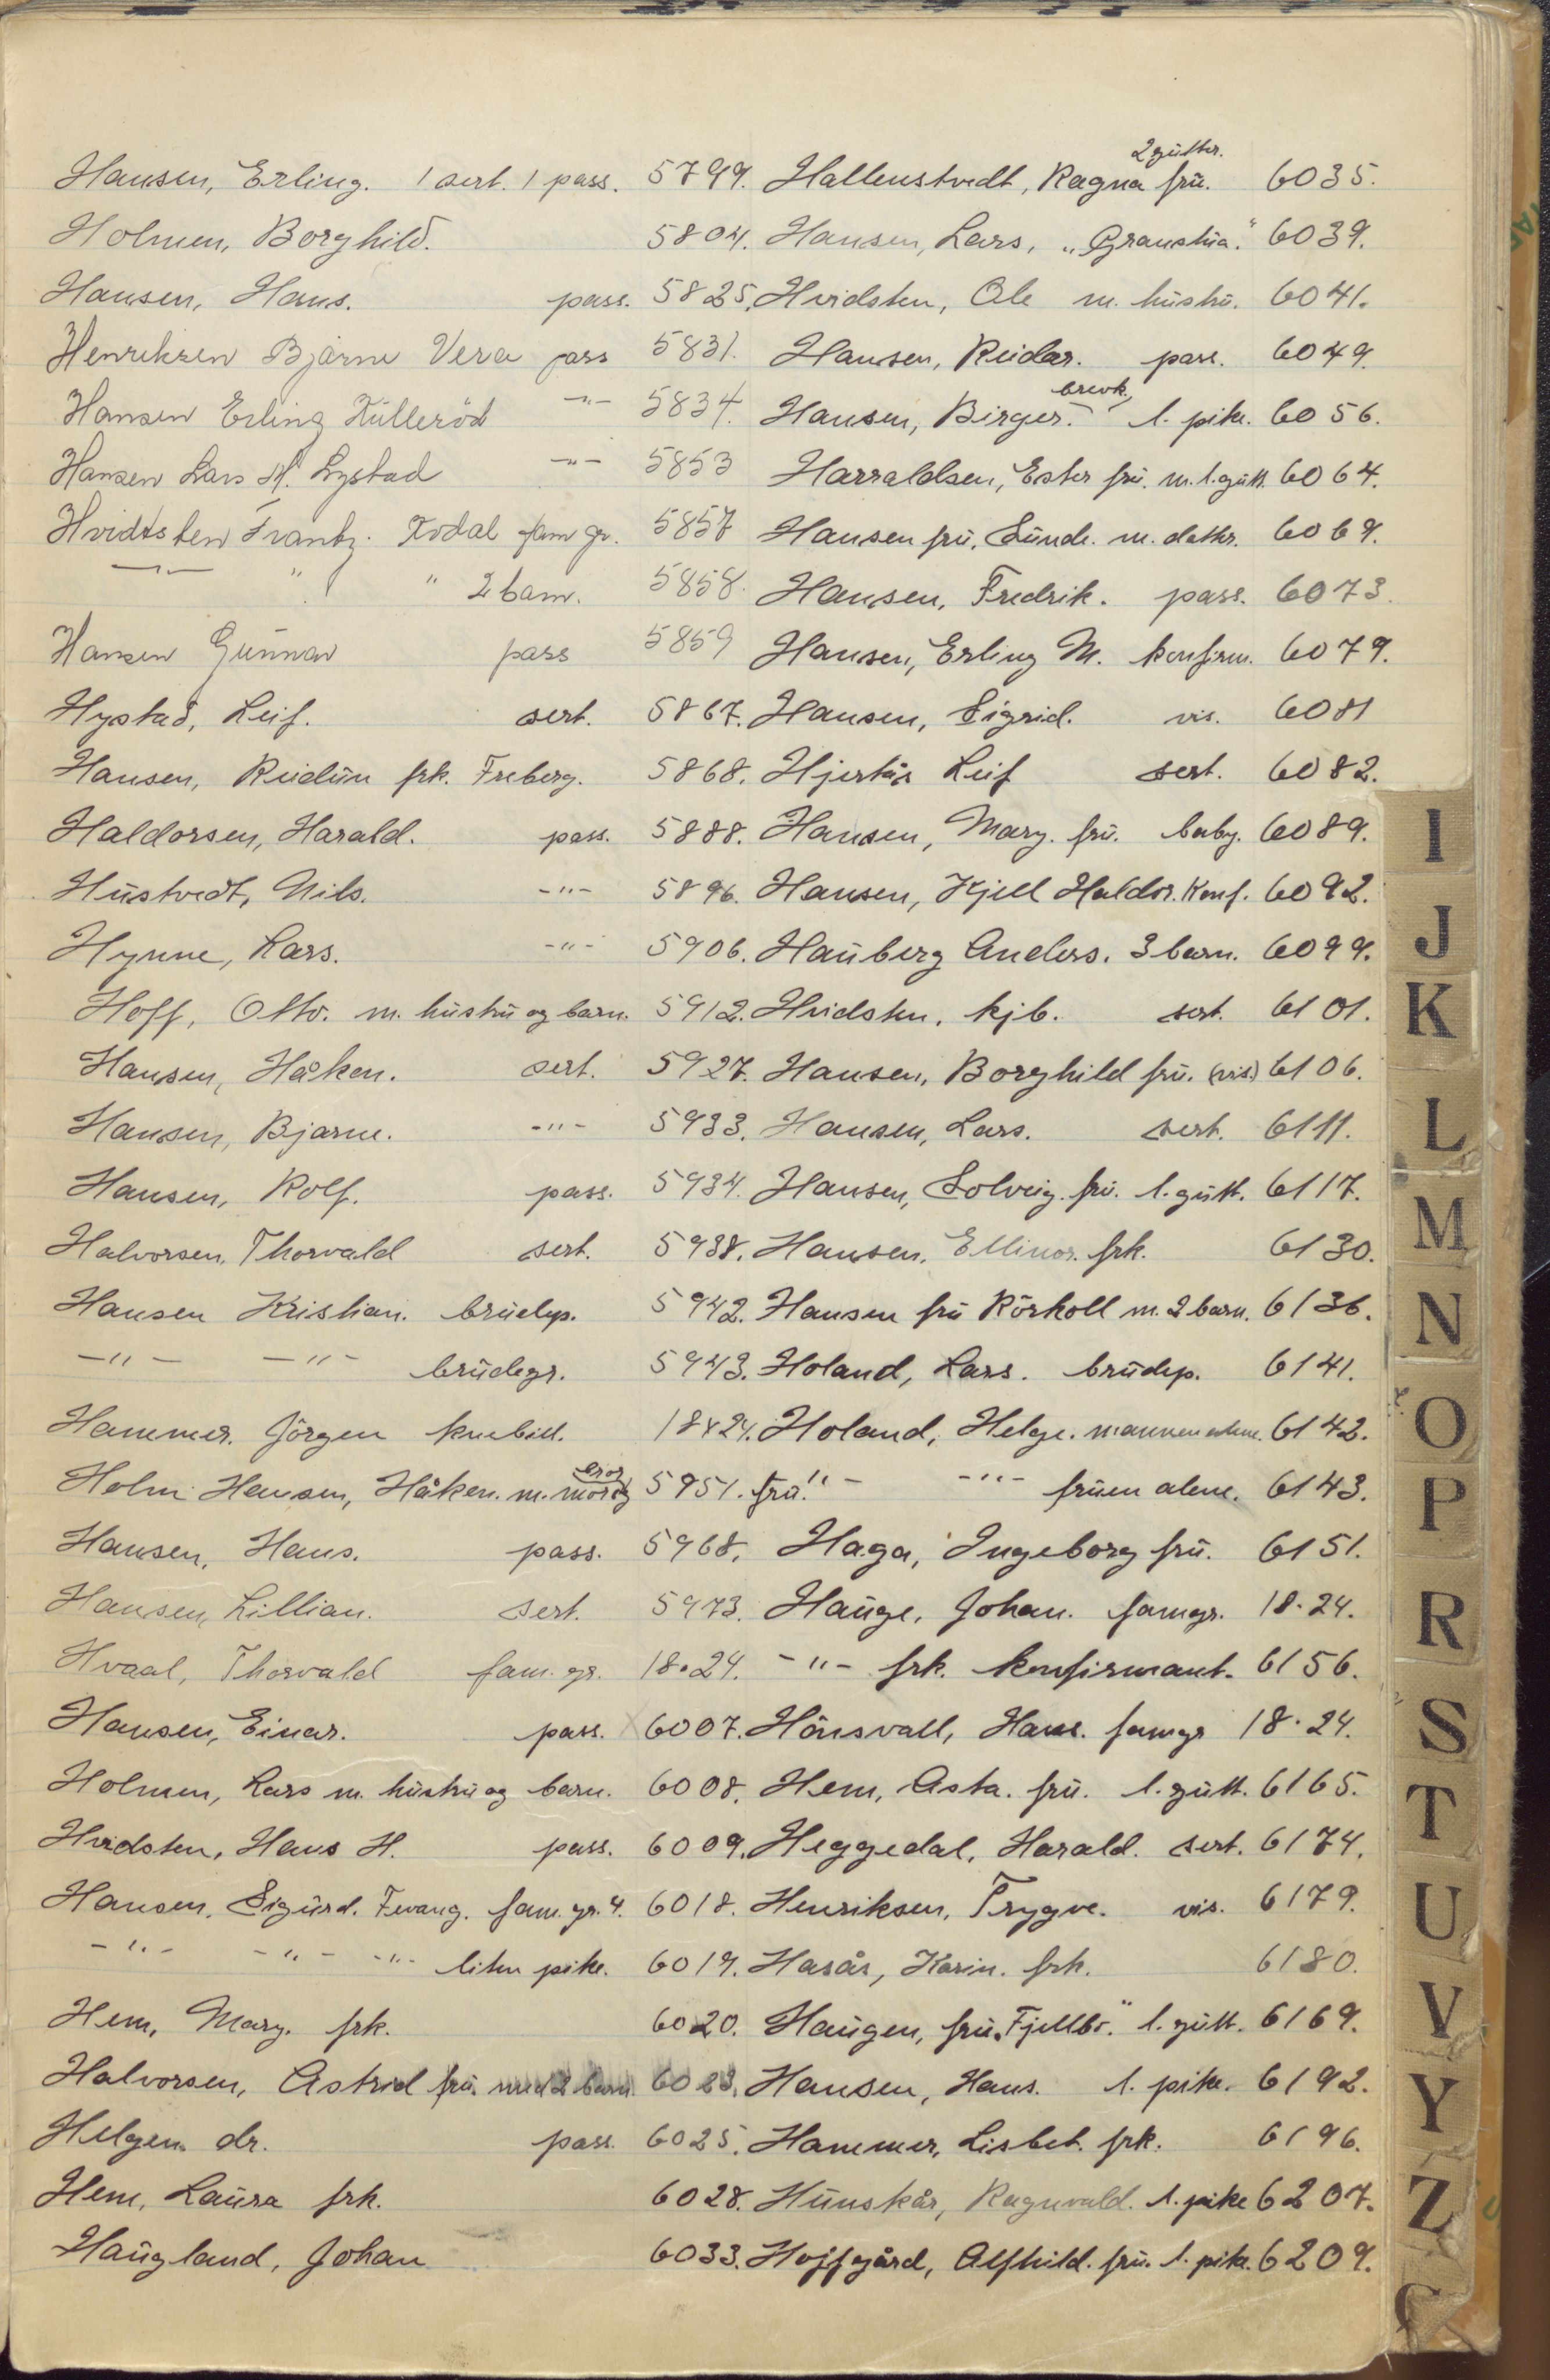 Hansen, Erling. 1 sert. 1 pass. 5799.
Holmen, Borghild. 5804.
Hansen, Hans. pass. 5825.
Henriksen Bjarne Vera pass 5831.
Hansen Erling Hülleröd -"- 5834.
Hansen Lars M. Lystad -"- 5853
Hvidtsten Frantz. Kodal fam gr. 5857
-"- " " 2 barn. 5858.
Hansen Günnar pass 5859
Hystad, Leif. sert. 5867.
Hansen, Reidün frk. Freberg. 5868.
Haldorsen, Harald. pass. 5888.
Hüstvedt, Nils. -"- 5896.
Hynne, Lars. -"- 5906.
Hoff, Otto. m. hüstrü og barn. 5912.
Hansen, Håken. sert. 5927.
Hansen, Bjarne. -"- 5933.
Hansen, Rolf. pass. 5934.
Halvorsen, Thorvald sert. 5938.
Hansen Kristian. brüdep. 5942.
-"- -"- brüdegr. 5943.
Hammer. Jörgen knebild. 18x24.
Holm Hansen, Håken. m. mor og bror 5951.
Hansen, Hans. pass. 5968.
Hansen, Lillian. sert. 5973.
Hvaal, Thorvald fam. gr. 18.24.
Hansen, Einar. pass. x 6007.
Holmen, Lars m. hüstrü og barn. 6008.
Hvidsten, Hans H. pass. 6009.
Hansen, Sigürd. Fevang. fam. gr. 4. 6018.
-"- -"- -"- liten pike. 6019.
Hem, Mary. frk. 6020.
Halvorsen, Astrid frü. med 2 barn. 6023.
Helgen. dr. pass. 6025.
Hem, Laüra frk. 6028.
Haügland, Johan 6033.
2 gütter.
Hallenstvedt, Ragna frü. 6035.
Hansen, Lars, "Granstüa." 6039.
Hvidsten, Ole m. hüstrü. 6041.
Hansen, Reidar. pass. 6049.
Hansen, Birger. brevk. 1. pike. 6056.
Harraldsen, Ester frü. m. 1. gütt. 6064.
Hansen frü. Sünde. m. datter. 6069.
Hansen, Fredrik. pass. 6073.
Hansen, Erling M. konfirm. 6079.
Hansen, Sigrid. vis. 6081
Hjertås Leif sert. 6082.
Hansen, Mary. frü. baby. 6089.
Hansen, Kjell Haldor. Konf. 6092.
Haüberg Anders. 3 barn. 6099.
Hvidsten, kjb. sert. 6101.
Hansen, Borghild frü. (vis.) 6106.
Hansen, Lars. sert. 6111.
Hansen, Solveig. frü. 1. gütt. 6117.
Hansen, Ellinor. frk. 6130.
Hansen frü Rörkoll m. 2 barn. 6136.
Holand, Lars. brüdep. 6141.
Holand, Helge. mannen alene. 6142.
frü. -"- -"- früen alene. 6143.
Haga, Ingeborg frü. 6151.
Haüge, Johan. famgr. 18.24.
-"- frk. konfirmant. 6156.
Hånsvall, Hans. famgr 18.24.
Hem, Asta. frü. 1. gütt. 6165.
Heggedal, Harald. sert. 6174.
Henriksen, Trygve. vis. 6179.
Hasås, Karin. frk. 6180.
Haügen, frü. "Fjellbo." 1. gütt. 6169.
Hansen, Hans. 1. pike. 6192.
Hammer, Lisbet. frk. 6196.
Hünskår, Ragnvald. 1. pike 6207.
Hoffgård, Alfhild. frü. 1. pike. 6209.
I
J
K
L
M
N
O
P
R
S
T
U
V
Y
Z